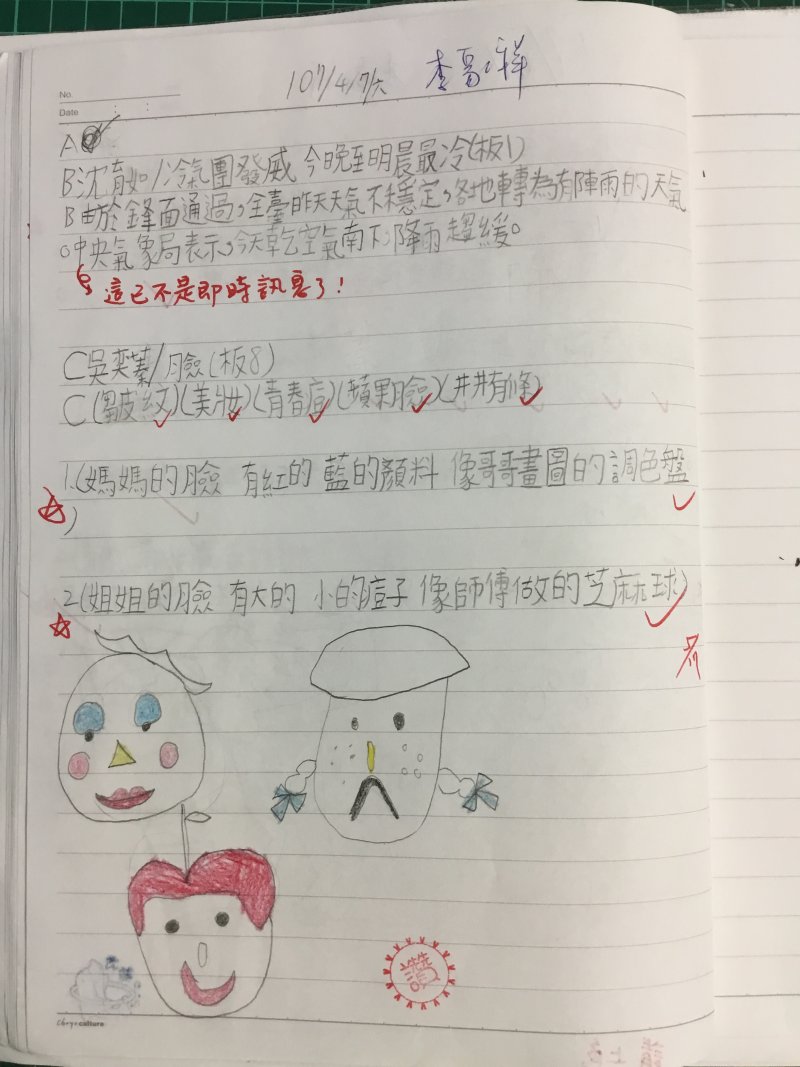 No.
Date
107/4/7/六
A
B沈育如/冷氣團發威 今晚至明晨最冷(板1)
B由於鋒面通過,全臺昨天天氣不穩定,各地轉為有陣雨的天氣
。中央氣象局表示,今天乾空氣南下,降雨趨緩。
這已不是即時訊息了!
C吳奕蓁/臉(板8)
C(皺皮紋)(美妝)(青春痘)(蘋果臉)(井井有條)
1.(媽媽的臉 有紅的 藍的顏料 像哥哥畫圖的調色盤
)
2(姐姐的臉 有大的 小的痘子 像師傅做的芝麻球)
讚
Chryn culture